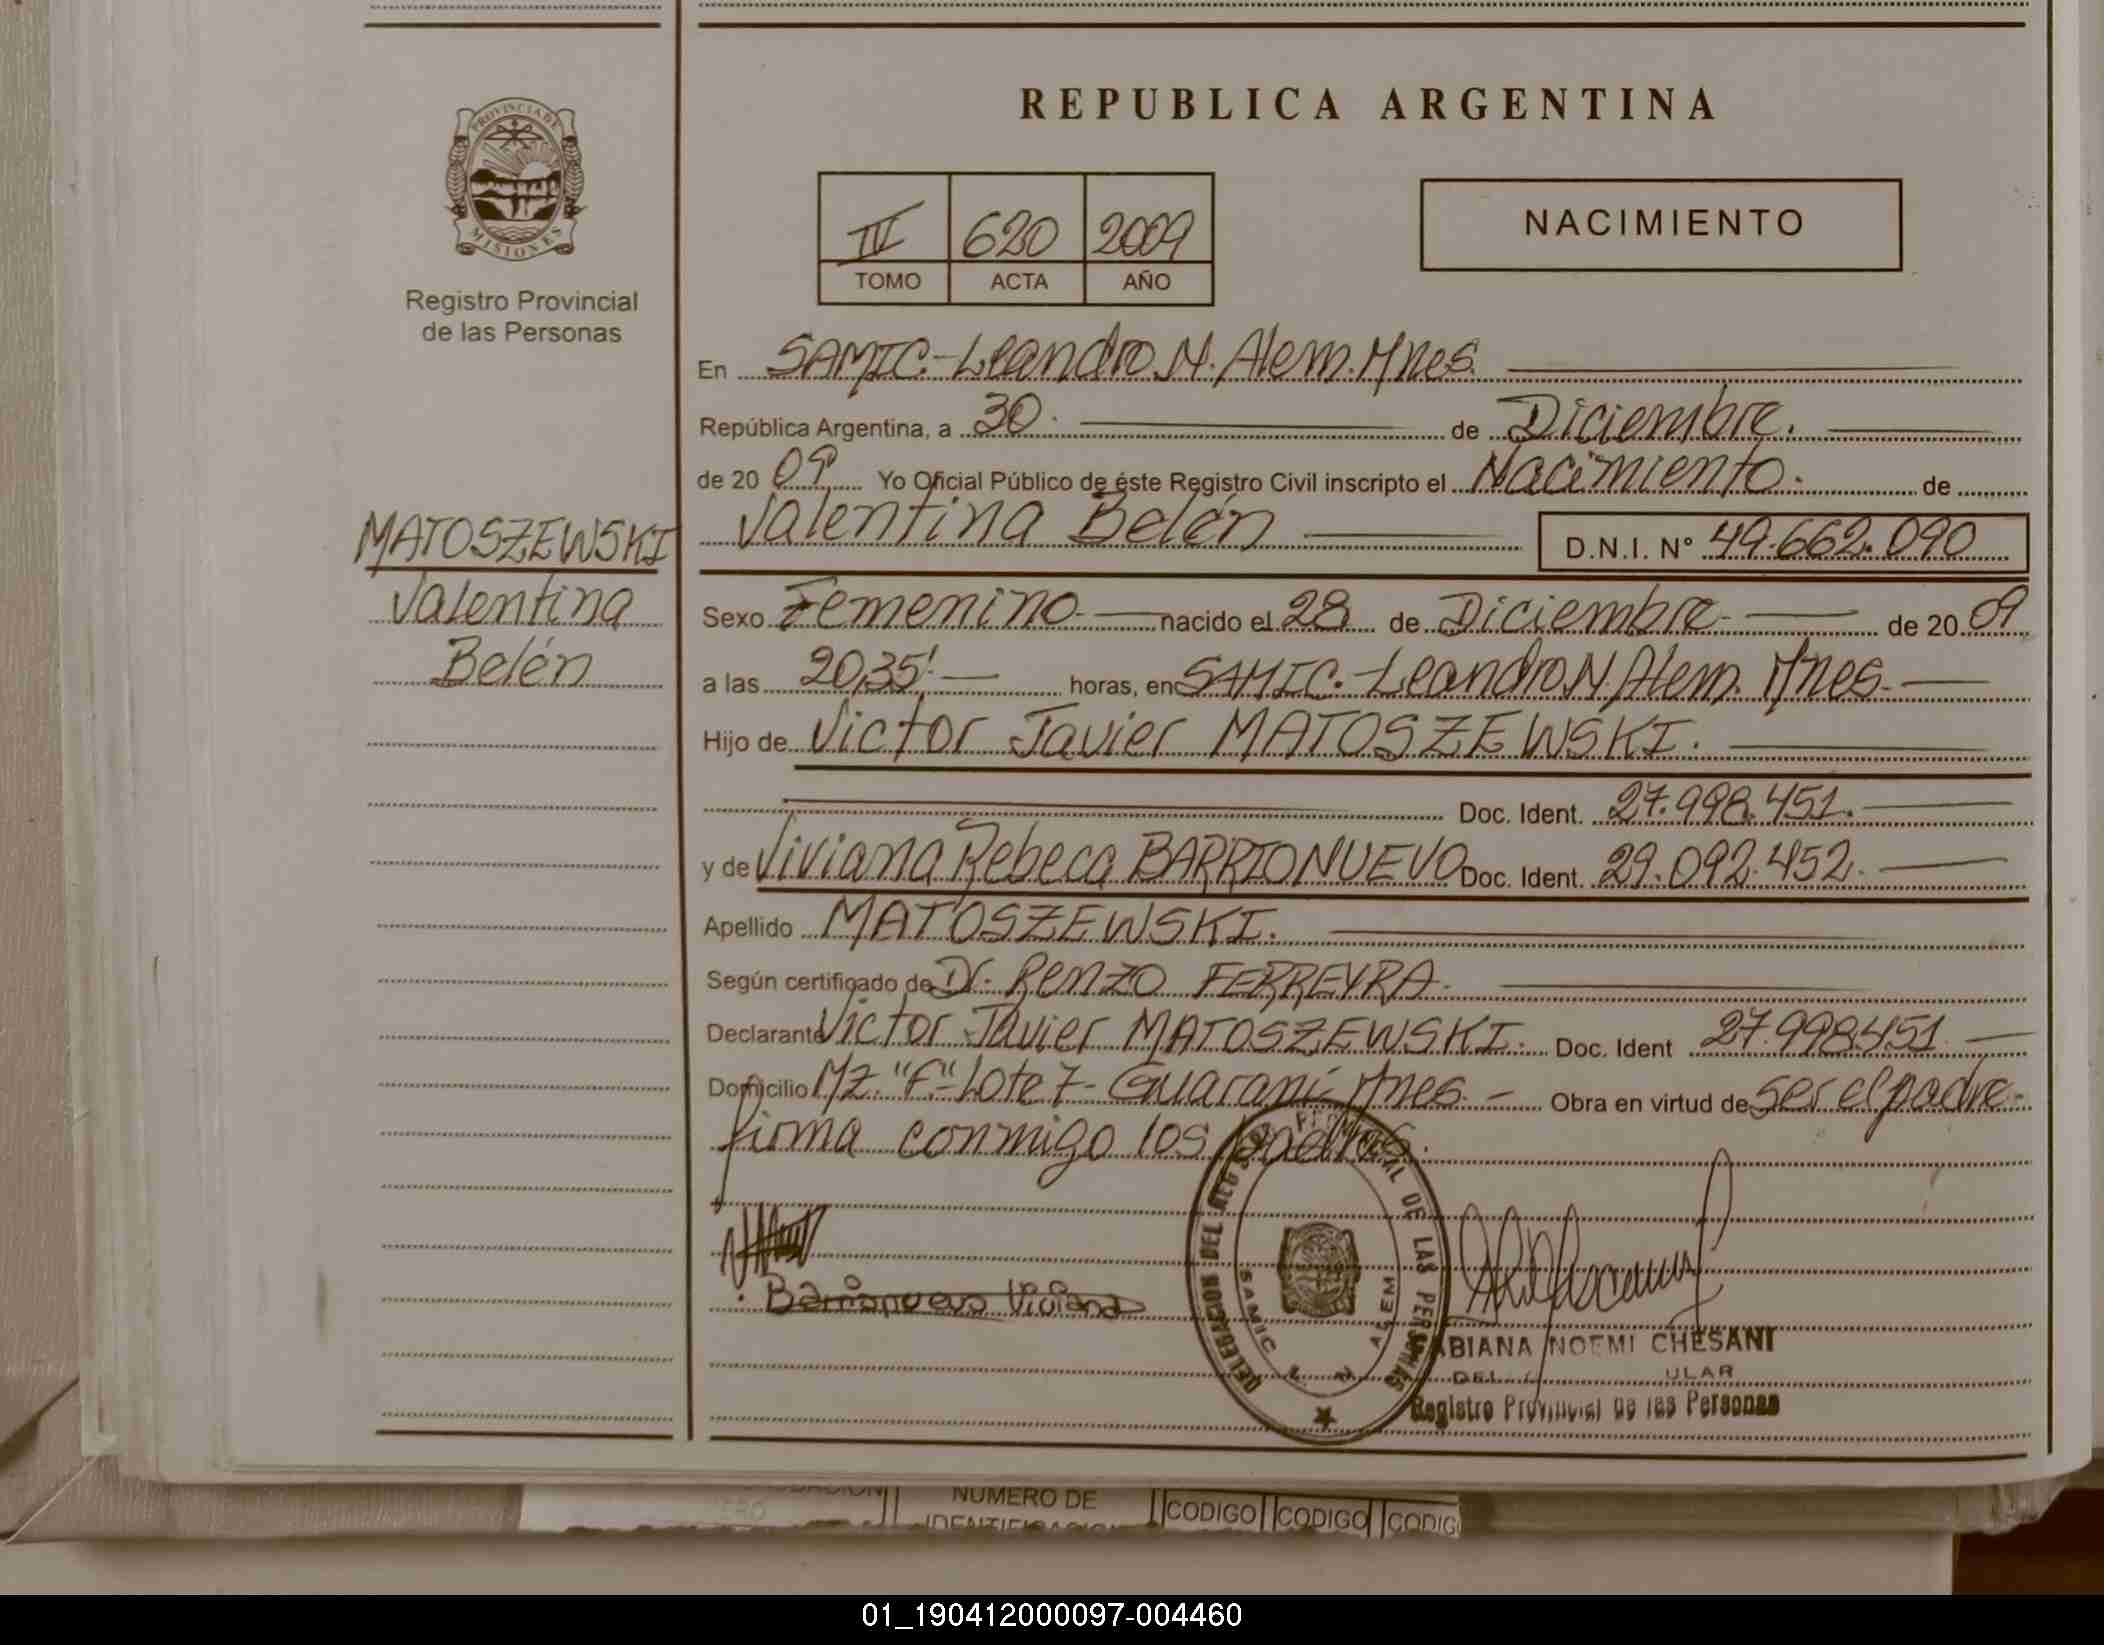 REPUBLICA ARGENTINA
PROVINCIA DE
MISIONES
Registro Provincial
de las Personas
IV 620 2009
TOMO ACTA AÑO
NACIMIENTO
En SAMIC.-Leandro N. Alem. Mnes.
República Argentina, a 30. de Diciembre.
de 20 09 Yo Oficial Público de éste Registro Civil inscripto el Nacimiento. de
Valentina Belén D.N.I. Nº 49.662.090
MATOSZEWSKI
Valentina
Belén
Sexo Femenino. nacido el 28 de Diciembre. de 20 09
a las 20,35'. horas, en SAMIC.-Leandro N Alem. Mnes.
Hijo de Victor Javier MATOSZEWSKI.
Doc. Ident. 27.998.451.
y de Viviana Rebeca BARRIONUEVO Doc. Ident. 29.092.452.
Apellido MATOSZEWSKI.
Según certificado de Dr. Renzo FERREYRA.
Declarante Victor Javier MATOSZEWSKI. Doc. Ident 27.998451.
Domicilio Mz. "F"-Lote 7- Guaraní- Mnes. Obra en virtud de ser el padre-
firma conmigo los padres.
Barrionuevo Viviana
DELEGACION DEL REGISTRO PROVINCIAL DE LAS PERSONAS
SAMIC L. N. ALEM
ABIANA NOEMI CHESANI
DEL ULAR
Registro Provincial de las Personas
NUMERO DE
IDENTIFICACION
CODIGO CODIGO CODIG
01_190412000097-004460